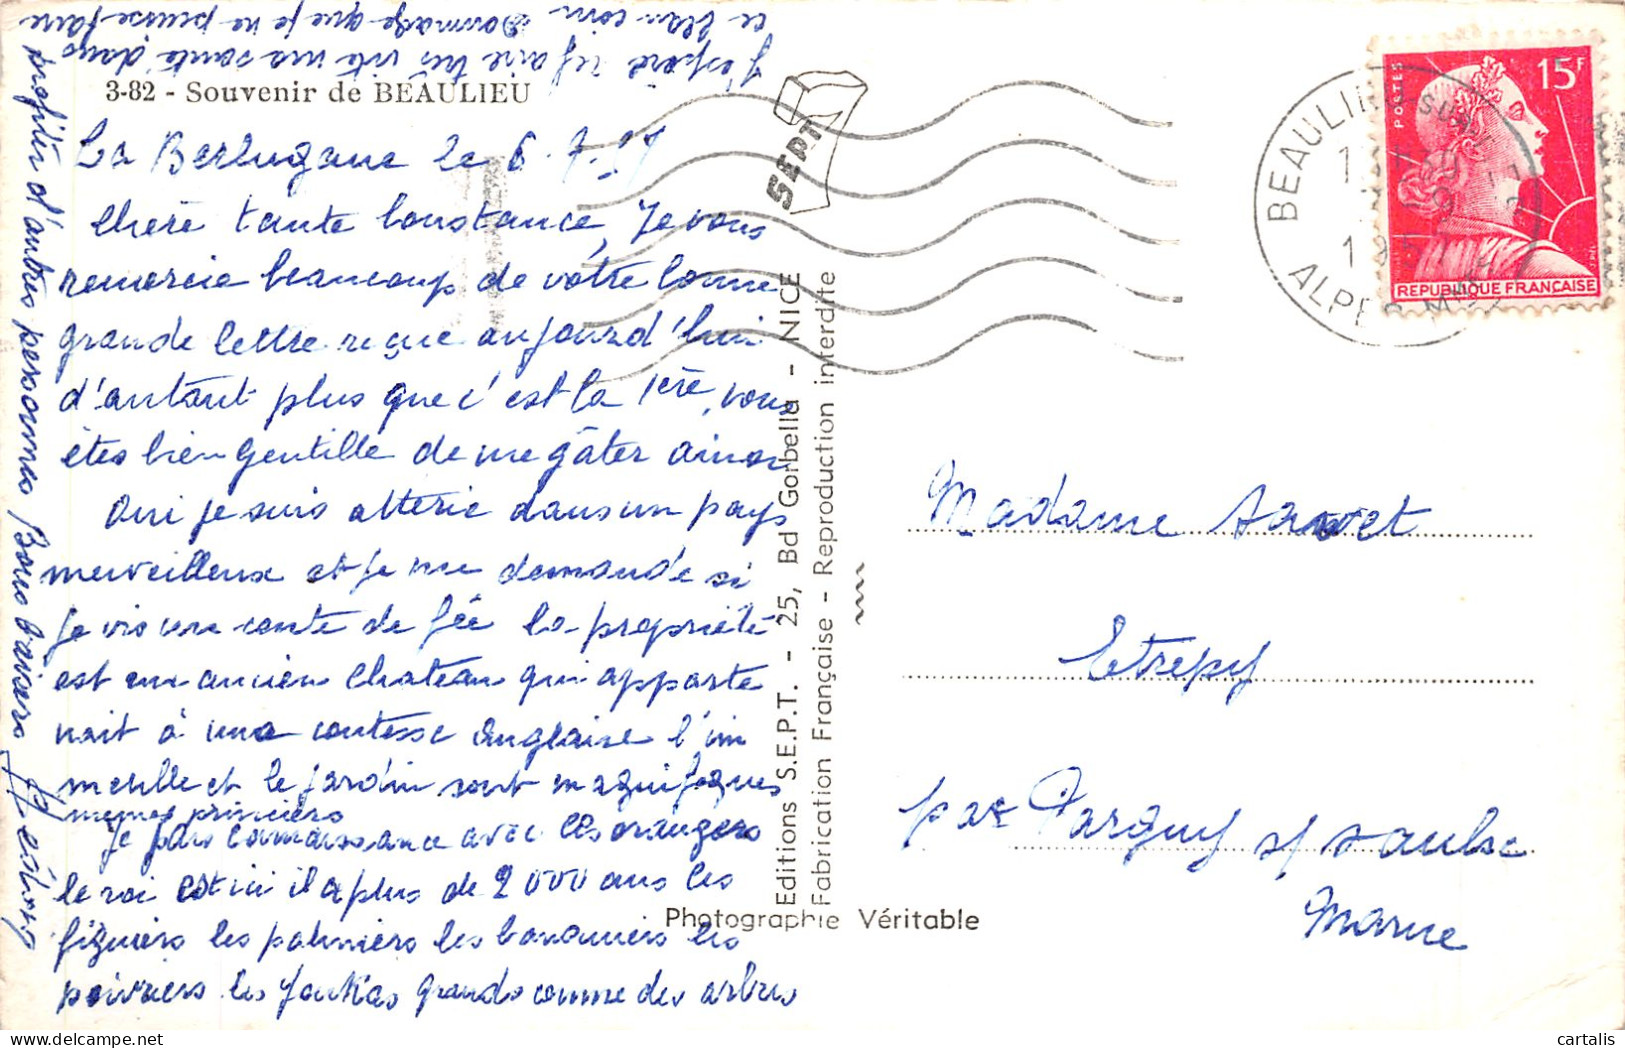 3-82 - Souvenir de BEAULIEU
La Berlugane le 6.7.57
Chère tante Constance, Je vous
remercie beaucoup de votre bonne
grande lettre reçue aujourd'hui
d'autant plus que c'est la 1ère, vous
êtes bien gentille de me gâter ainsi
Oui je suis attérie dans un pays
merveilleux et je me demande si
je vis un conte de fée la propriété
est un ancien chateau qui apparte
nait à une contesse anglaise l'im
meuble et le jardin sont magnifiques
memes princiers
Je fais connaissance avec les orangers
le roi est ici il a plus de 2000 ans les
figuiers les palmiers les bananiers les
poivriers les youkas grands comme des arbres
J'espère refaire très vite ma santé dans
ce beau coin Dommage que je ne puisse faire
profiter d'autres personnes Bons baisers
Editions S.E.P.T. - 25, Bd Gorbella - NICE
Fabrication Française - Reproduction interdite
Photographie Véritable
SEPT
POSTES
15F
REPUBLIQUE FRANÇAISE
BEAULIEU SUR MER
ALPES MMES
Madame
Etrepy
par Pargny s/ Saulx
Marne
cartalis